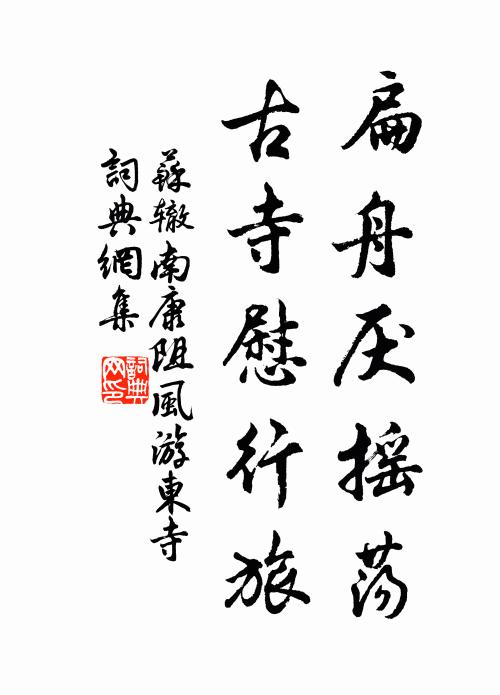 扁舟厌摇荡
古寺慰行旅
蘇辙南康阻風游東寺
詞典網集
詞典网印